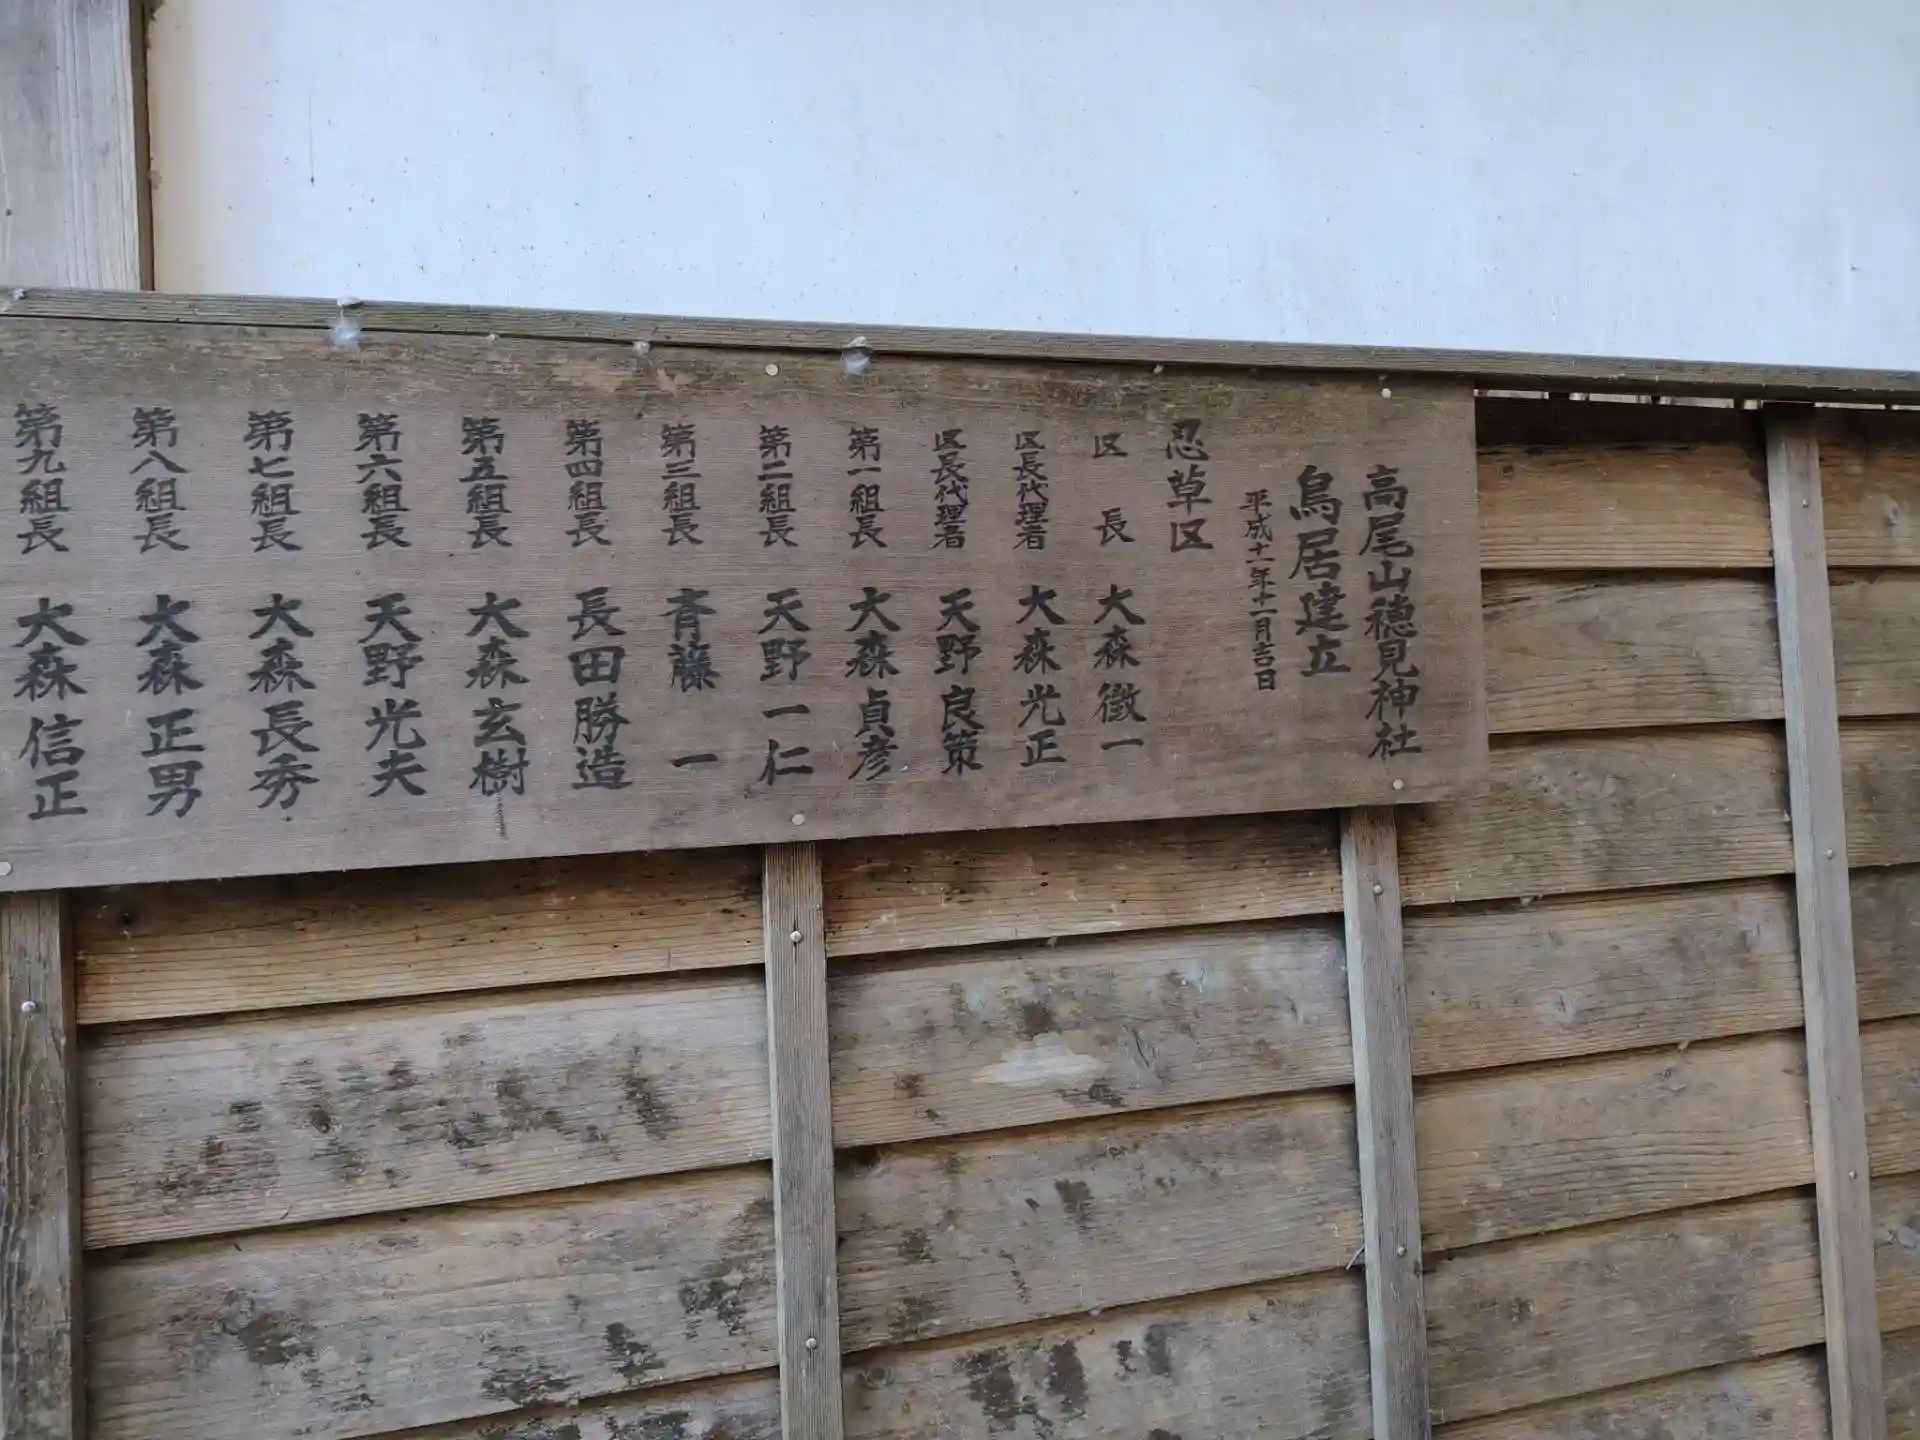 高尾山穂見神社
鳥居建立
平成十一年十一月吉日
忍草区
区長 大森徴一
区長代理者 大森光正
区長代理者 天野良策
第一組長 大森貞彦
第二組長 天野一仁
第三組長 斉藤一
第四組長 長田勝造
第五組長 大森玄樹
第六組長 天野光夫
第七組長 大森長秀
第八組長 大森正男
第九組長 大森信正